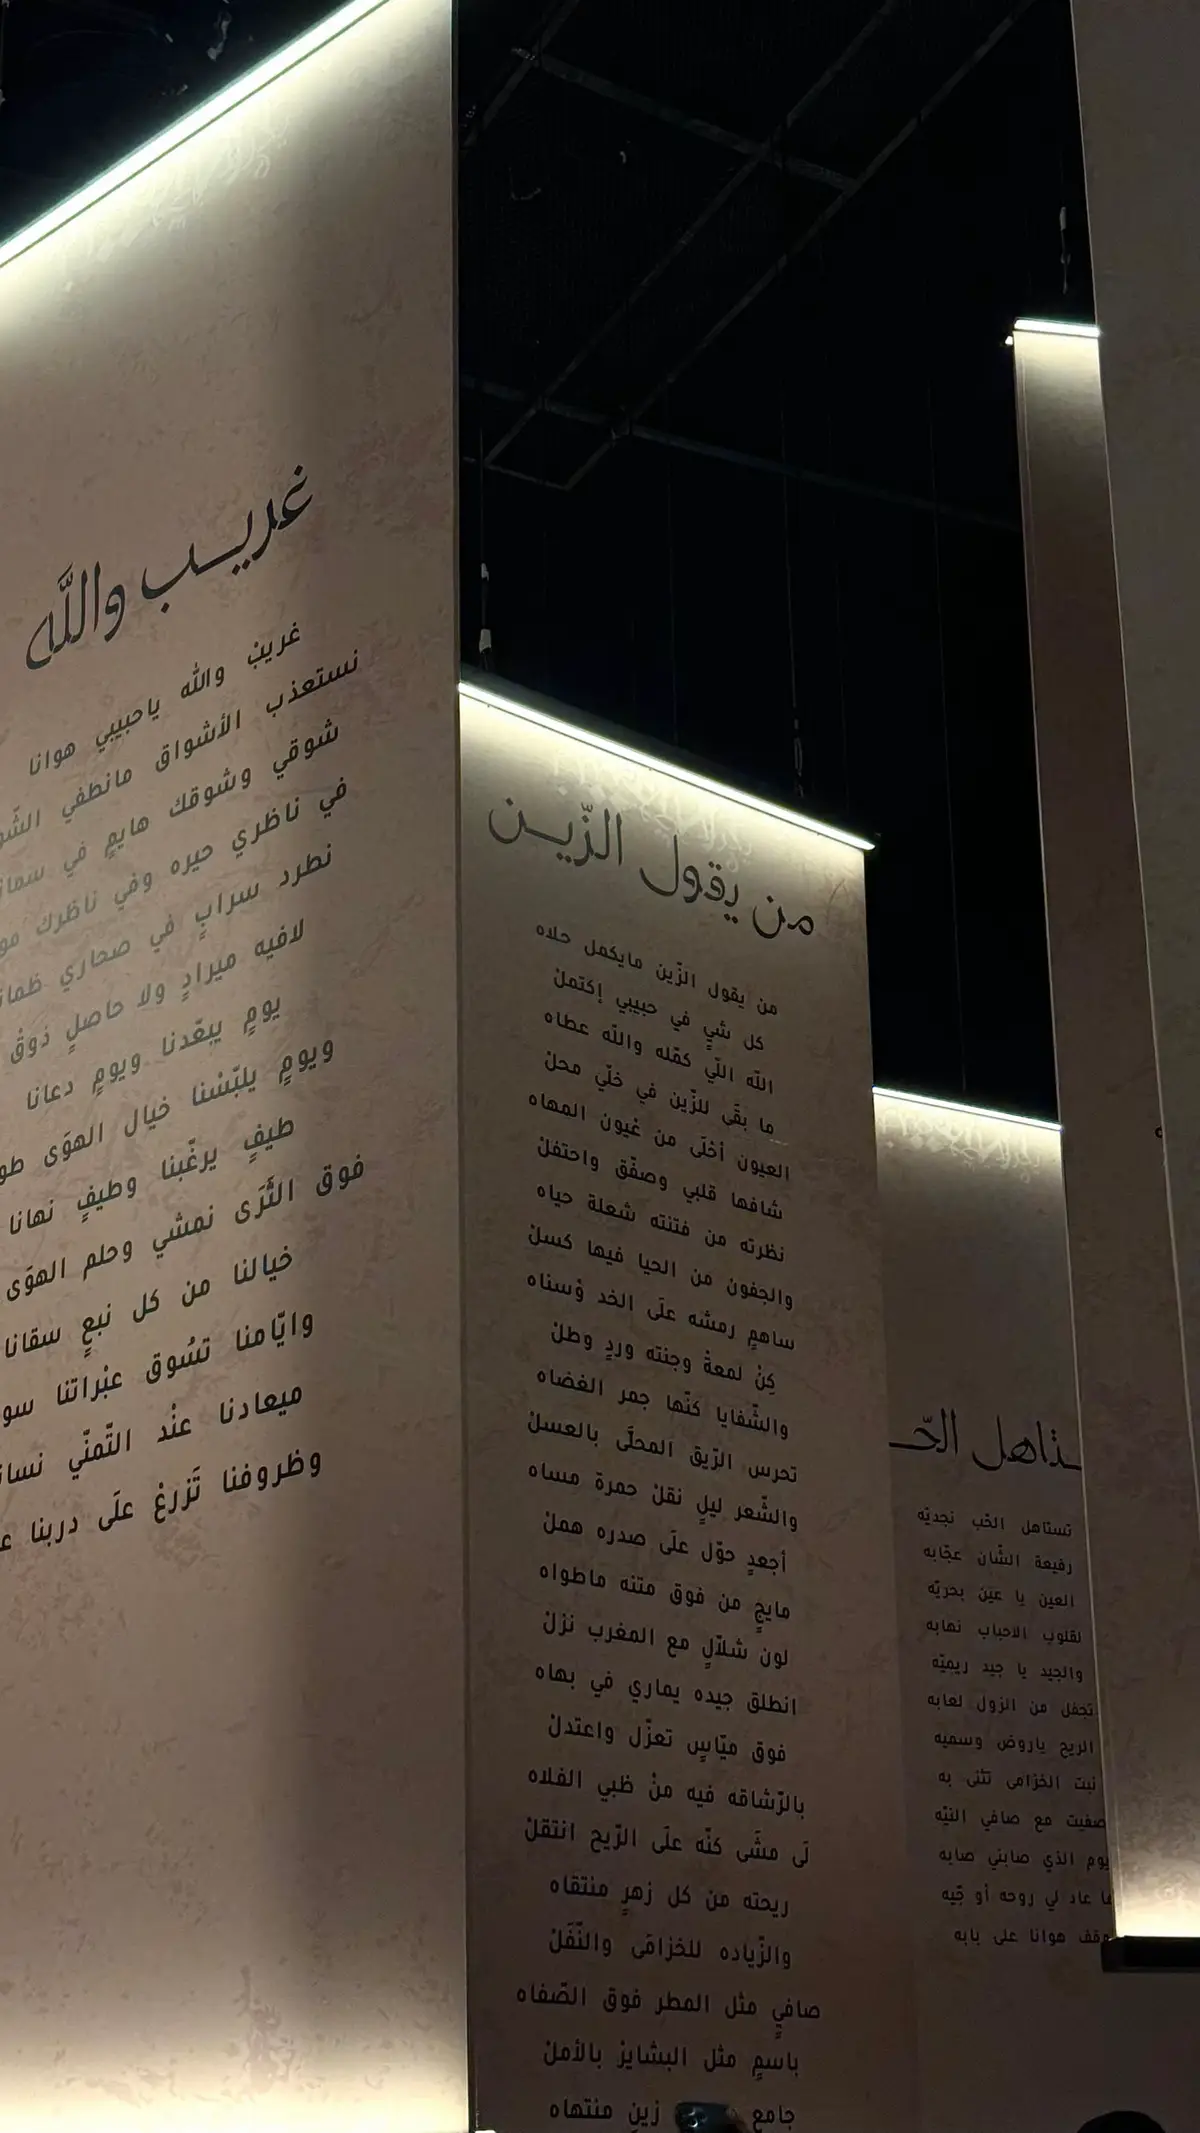 غريب والله
غريبْ والله ياحبيبي هوانا
نستعذب الأشواق مانطفي
شوقي وشوقك هايمٍ في
في ناظري حيره وفي ناظرك
نطرد سرابٍ في صحاري
لافيه ميرادٍ ولا حاصلٍ ذوقْ
يومٍ يبعّدنا ويومٍ دعانا
ويومٍ يلبّسْنا خيال الهوَى
طيفٍ يرغّبنا وطيفٍ نهانا
فوق الثَّرَى نمشي وحلم الهوَى
خيالنا من كل نبعٍ سقانا
وايّامنا تسُوق عبْراتنا
ميعادنا عنْد التّمنّي
وظروفنا تَزرعْ علَى دربنا
من يقول الزّين
من يقول الزّين مايكمل حلاه
كل شيٍ في حبيبي إكتملْ
الله اللّي كمّله والله عطاه
ما بقَى للزّين في خلّي محلْ
العيون أحْلَى من عْيون المهاه
شافها قلبي وصفّق واحتفلْ
نظرته من فتنته شعلة حياه
والجفون من الحيا فيها كسلْ
ساهمٍ رمشه علَى الخد وْسناه
كِنْ لمعةْ وجنته وردٍ وطلْ
والشّفايا كنّها جمر الغضاه
تحرس الرّيق المحلَّى بالعسلْ
والشّعر ليلٍ نقلْ حمرة مساه
أجعدٍ حوّل علَى صدره هملْ
مايجٍ من فوق متنه ماطواه
لون شلاّلٍ مع المغرب نزلْ
انطلق جيده يماري في بهاه
فوق ميّاسٍ تعزّل واعتدلْ
بالرّشاقه فيه منْ ظبي الفلاه
لَى مشَى كنّه علَى الرّيح انتقلْ
ريحته من كل زهرٍ منتقاه
والزّياده للخزامَى والنّفَلْ
صافيٍ مثل المطر فوق الصّفاه
باسمٍ مثل البشايرْ بالأملْ
جامع زينٍ منتهاه
تستاهل الحّب نجديّه
رفيعة الشّان عجّابه
العين يا عين بحريّه
لقلوب الاحباب نهابه
والجيد يا جيد ريميّه
تجفل من الزول لعابه
الريح ياروض وسميه
نبت الخزامى تثنى به
صفيت مع صافي النيّه
يوم الذي صابني صابه
ما عاد لي روحه أو جّيه
وقف هوانا على بابه